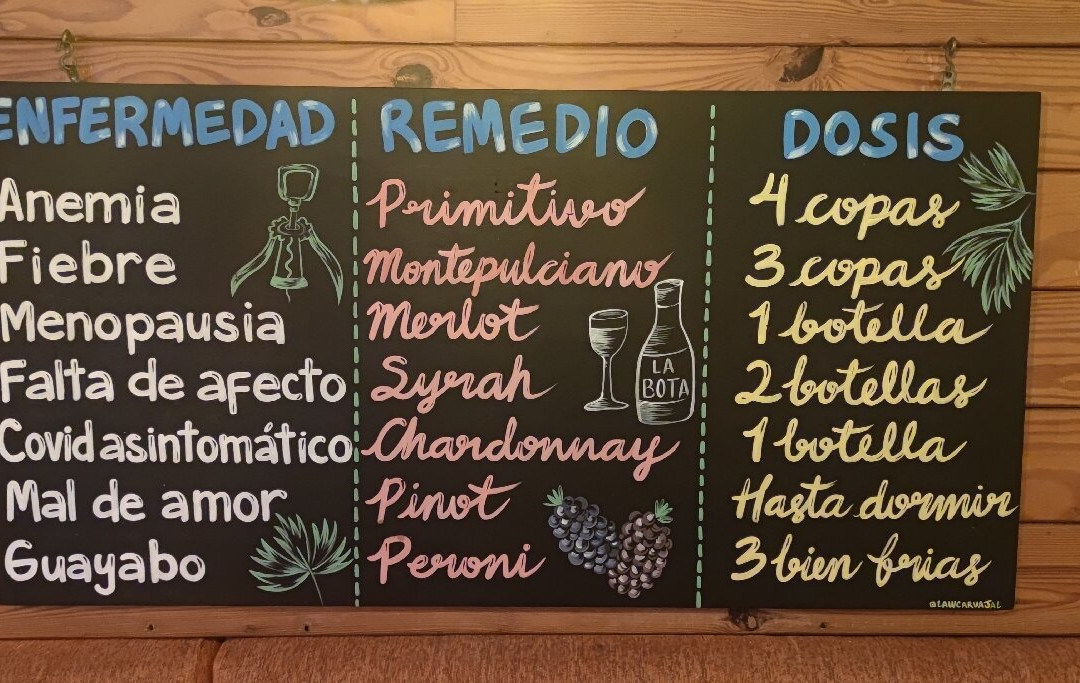 ENFERMEDAD REMEDIO DOSIS
Anemia Primitivo 4 copas
Fiebre Montepulciano 3 copas
Menopausia Merlot 1 botella
Falta de afecto Syrah 2 botellas
LA BOTA
Covid asintomático Chardonnay 1 botella
Mal de amor Pinot Hasta dormir
Guayabo Peroni 3 bien frias
@LAWCARVAJAL